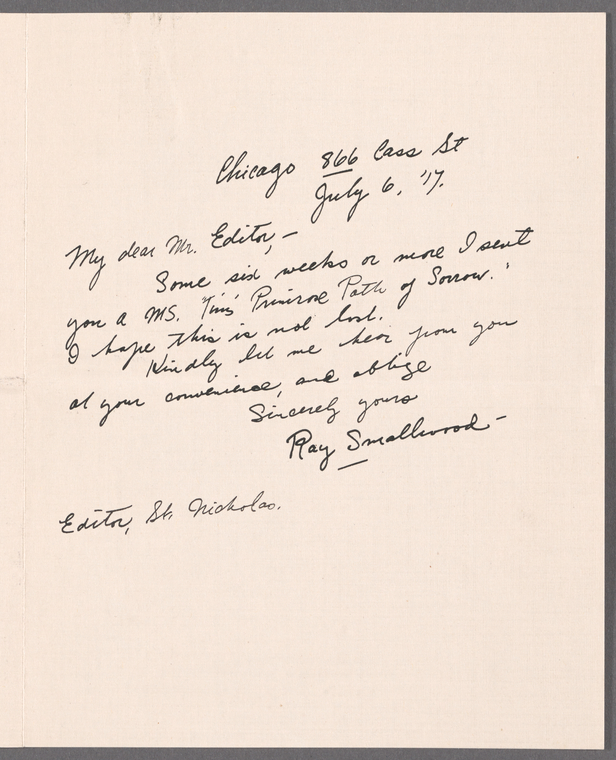 Chicago 866 Cass St
July 6, '17.
My dear Mr. Editor, —
Some six weeks or more I sent
you a MS. "Tim's Primrose Path of Sorrow."
I hope this is not lost.
Kindly let me hear from you
at your convenience, and oblige
Sincerely yours
Ray Smallwood —
Editor, St. Nicholas.